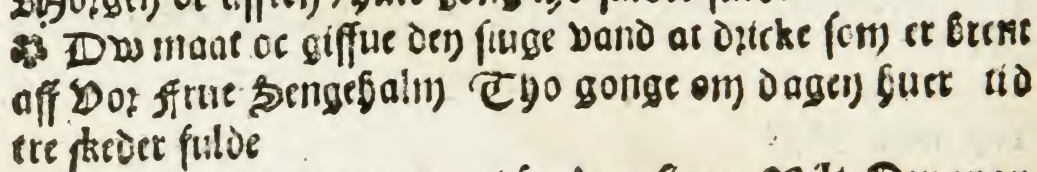 Dw maat oc giffue den siuge vand at dricke som er brent
aff Vor Frue Sengehalm Tho gonge om dagen huer tid
tre skeder fulde